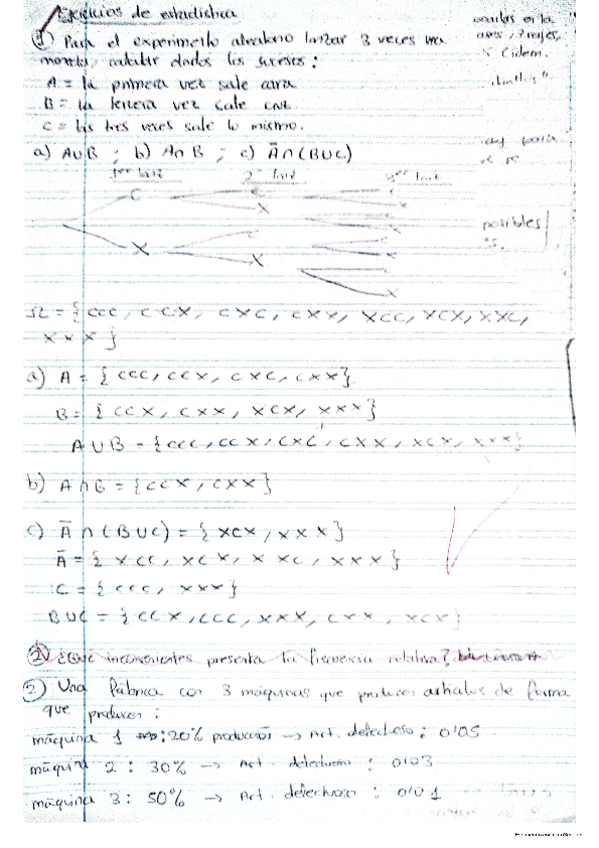 Ejercicios de estadística
① Para el experimento aleatorio lanzar 3 veces una
moneda, calcular dados los sucesos:
A = la primera vez sale cara
B = la tercera vez sale cruz
C = las tres veces sale lo mismo.
a) A∪B ; b) A∩B ; c) Ā∩(B∪C)
1er lanz 2º lanz 3er lanz
C C
X
X C
X
Ω = { CCC, CCX, CXC, CXX, XCC, XCX, XXC,
XXX }
a) A = { CCC, CCX, CXC, CXX }
B = { CCX, CXX, XCX, XXX }
A∪B = { CCC, CCX, CXC, CXX, XCX, XXX }
b) A∩B = { CCX, CXX }
c) Ā∩(B∪C) = { XCX, XXX }
Ā = { XCC, XCX, XXC, XXX }
C = { CCC, XXX }
B∪C = { CCX, CCC, XXX, CXX, XCX }
② ¿Qué inconvenientes presenta la frecuencia relativa?
② Una fábrica con 3 máquinas que producen artículos de forma
que producen:
máquina 1 : 20% producción → Art. defectuoso : 0'05
máquina 2 : 30% → Art. defectuoso : 0'03
máquina 3 : 50% → Art. defectuoso : 0'01
posibles